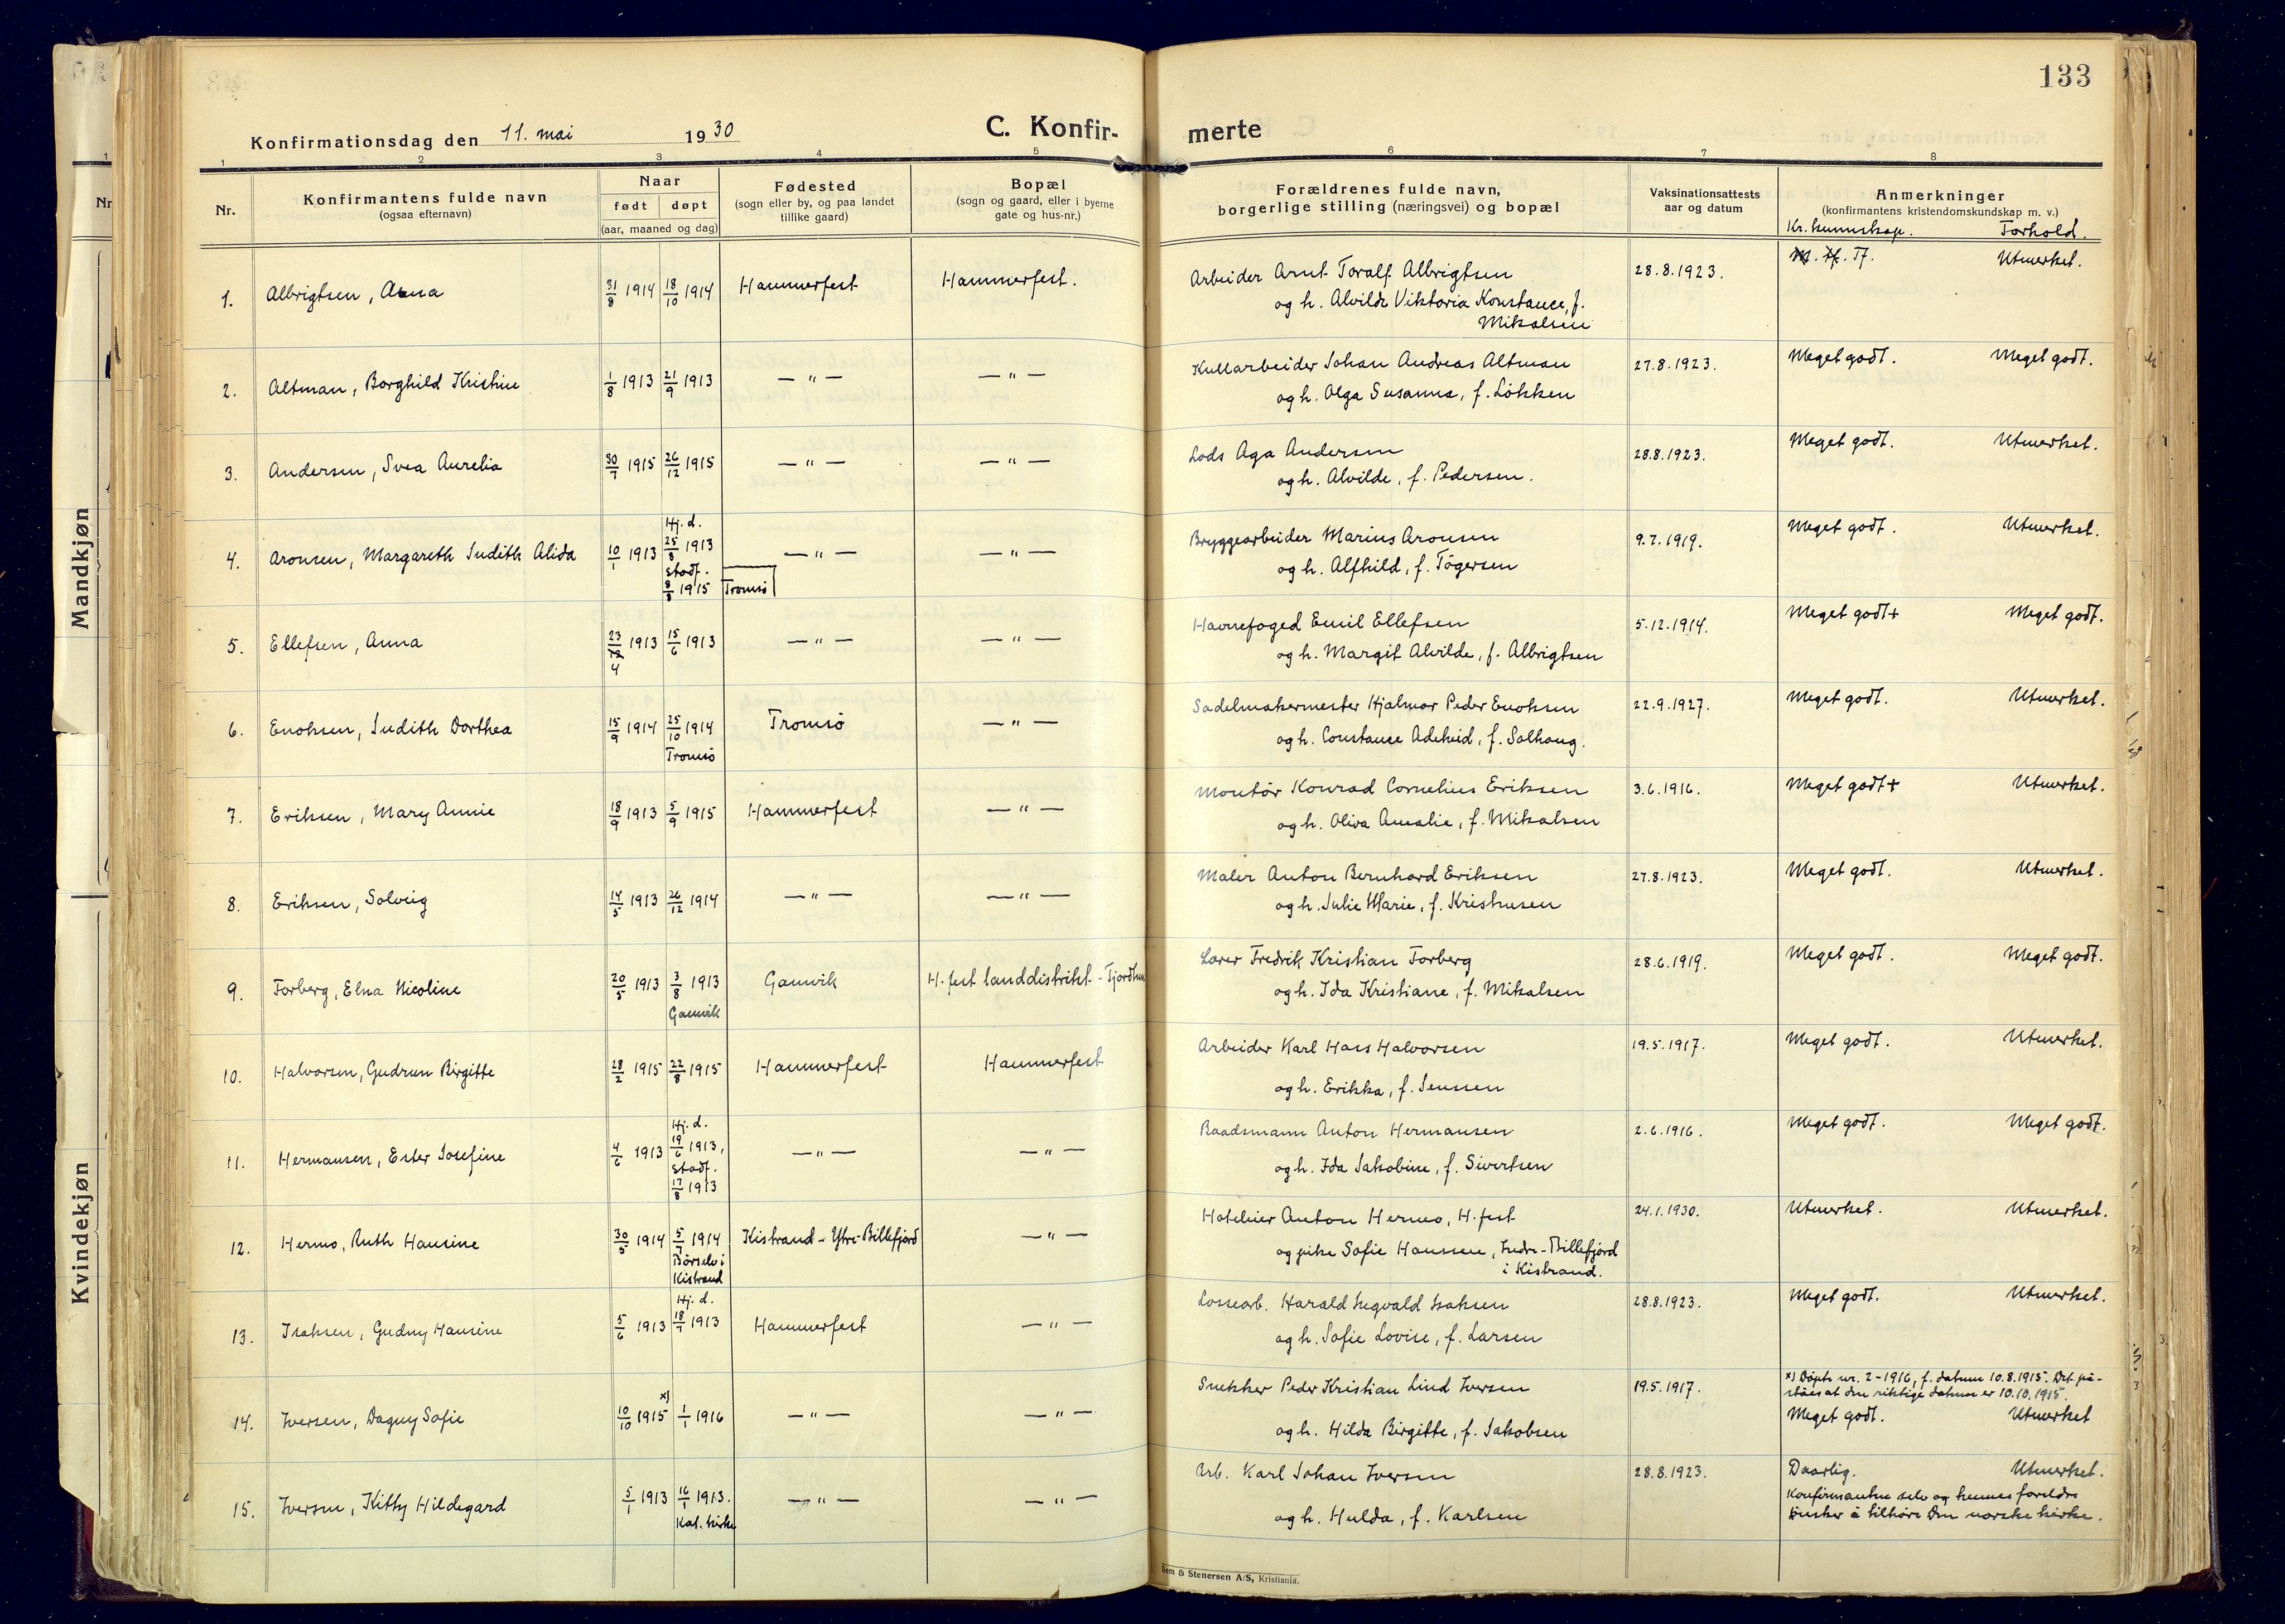 133
Konfirmationsdag den 11. mai 1930
C. Konfir-
merte
1 2 3 4 5 6 7 8
Nr.
Konfirmantens fulde navn
(ogsaa efternavn)
Naar
født døpt
(aar, maaned og dag)
Fødested
(sogn eller by, og paa landet
tillike gaard)
Bopæl
(sogn og gaard, eller i byerne
gate og hus-nr.)
Forældrenes fulde navn,
borgerlige stilling (næringsvei) og bopæl
Vaksinationsattests
aar og datum
Anmerkninger
(konfirmantens kristendomskundskap m. v.)
Kr. kunnskap. Forhold.
1. Albrigtsen, Anna 31/8 1914 18/10 1914 Hammerfest Hammerfest.
Arbeider Arnt Toralf Albrigtsen 28.8.1923. Tf. Utmerket.
og h. Alvilde Viktoria Konstance, f.
Mikalsen
2. Altman, Borghild Kristine 1/8 1913 21/9 1913 — " — — " —
Kullarbeider Johan Andreas Altman 27.8.1923. Meget godt. Meget godt.
og h. Olga Susanna, f. Løkken
3. Andersen, Svea Aurelia 30/7 1915 26/12 1915 — " — — " —
Lods Aga Andersen 28.8.1923. Meget godt. Utmerket.
og h. Alvilde, f. Pedersen.
4. Aronsen, Margareth Judith Alida 10/1 1913 Hj. d. 25/8 1913 — " — — " —
stadf.
8/8 1915 Tromsø
Bryggearbeider Marius Aronsen 9.7.1919. Meget godt. Utmerket.
og h. Alfhild, f. Tøgersen
5. Ellefsen, Anna 23/4 1913 15/6 1913 — " — — " —
Havnefoged Emil Ellefsen 5.12.1914. Meget godt+ Meget godt.
og h. Margit Alvilde, f. Albrigtsen
6. Enoksen, Judith Dorthea 15/9 1914 25/10 1914 Tromsø — " —
Tromsø
Sadelmakermester Hjalmar Peder Enoksen 22.9.1927. Meget godt. Utmerket.
og h. Constance Adeheid, f. Solhaug.
7. Eriksen, Mary Annie 18/9 1913 5/9 1915 Hammerfest — " —
Montør Konrad Cornelius Eriksen 3.6.1916. Meget godt+ Utmerket.
og h. Oliva Amalie, f. Mikalsen
8. Eriksen, Solveig 14/5 1913 26/12 1914 — " — — " —
Maler Anton Bernhard Eriksen 27.8.1923. Meget godt. Utmerket.
og h. Julie Marie, f. Kristensen
9. Forberg, Elna Nicoline 20/5 1913 3/8 1913 Gamvik H.fest landdistrikt -
Gamvik
Lærer Fredrik Kristian Forberg 28.6.1919. Meget godt. Meget godt.
og h. Ida Kristiane, f. Mikalsen
10. Halvorsen, Gudrun Birgitte 28/2 1915 22/8 1915 Hammerfest Hammerfest
Arbeider Karl Hans Halvorsen 19.5.1917. Meget godt. Utmerket.
og h. Erikka, f. Jenssen
11. Hermansen, Ester Josefine 4/6 1913 Hj. d. 19/6 1913, — " — — " —
stadf.
17/8 1913
Baadsmann Anton Hermansen 2.6.1916. Meget godt. Meget godt.
og h. Ida Jakobine, f. Sivertsen
12. Hermo, Ruth Hansine 30/5 1914 5/7 1914 Kistrand - Ytre-Billefjord — " —
Børselv i
Kistrand
Hoteleier Anton Hermo, H.fest 24.1.1930. Utmerket. Utmerket.
og pike Sofie Hanssen, Indre-Billefjord
i Kistrand.
13. Isaksen, Gudny Hansine 5/6 1913 Hj. d. 18/7 1913 Hammerfest — " —
Lossearb. Harald Segvald Isaksen 28.8.1923. Meget godt. Utmerket.
og h. Sofie Lovise, f. Larsen
14. Iversen, Dagny Sofie 10/10 1915 x) 1/1 1916 — " — — " —
Snekker Peder Kristian Lind Iversen 19.5.1917. x) Døpte nr. 2-1916, f. datum 10.8.1915. Det på-
ståes at den riktige datum er 10.10.1915.
og h. Hilda Birgitte, f. Jakobsen Meget godt. Utmerket
15. Iversen, Kitty Hildegard 5/1 1913 16/1 1913. — " — — " —
Kat. kirke
Arb. Karl Johan Iversen 28.8.1923. Daarlig. Utmerket.
og h. Hulda, f. Karlsen Konfirmanten selv og hennes foreldre
ønsker å tilhøre Den norske kirke.
Sem & Stenersen A/S, Kristiania.
Mandkjøn
Kvindekjøn
1
Nr